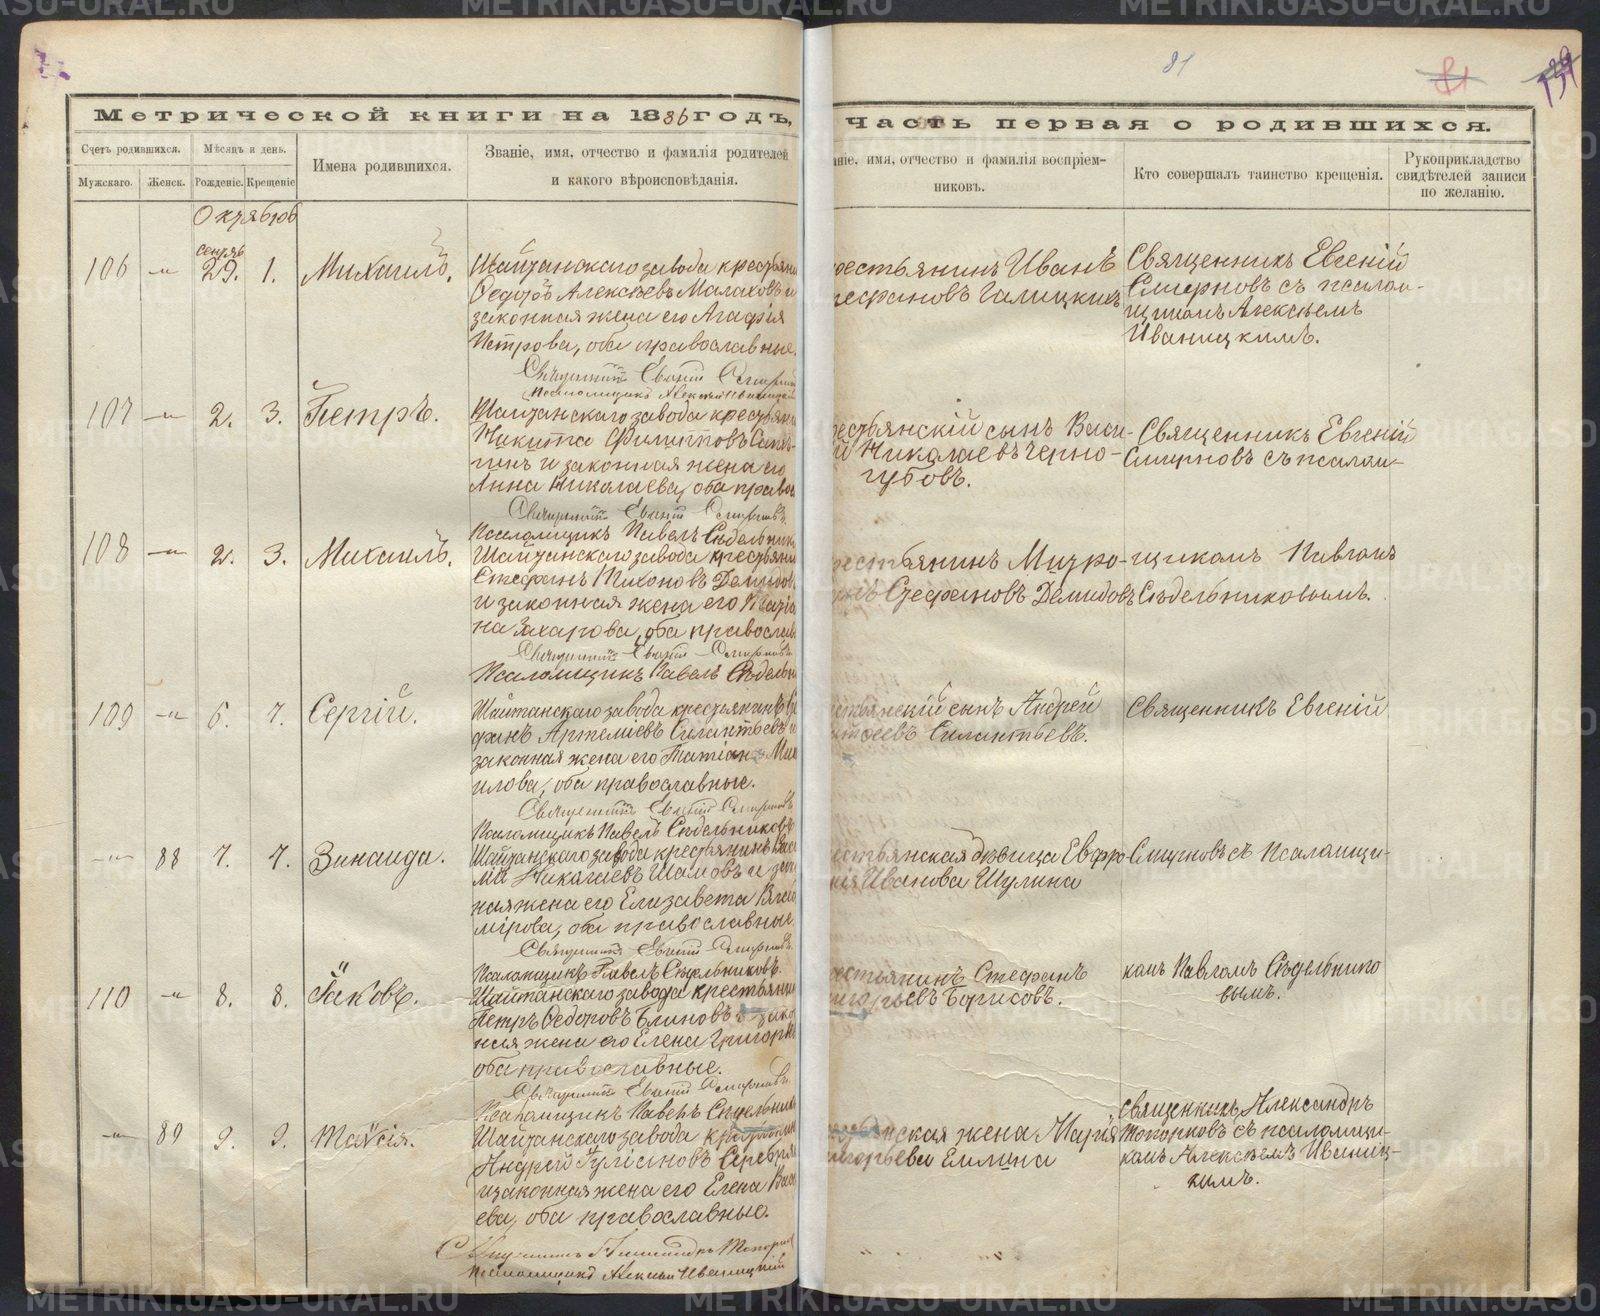 81
Метрической книги на 1886 годъ,
часть первая о родившихся.
Счетъ родившихся.
Мѣсяцъ и день.
Имена родившихся.
Званіе, имя, отчество и фамилія родителей
и какого вѣроисповѣданія.
Мужскаго.
Женск.
Рожденіе.
Крещеніе
ніе, имя, отчество и фамилія воспріем-
никовъ.
Кто совершалъ таинство крещенія.
Рукоприкладство
свидѣтелей записи
по желанію.
Октябрь
106 -"- Сентяб 29. 1. Михаилъ.
Шайтанскаго завода крестьяни
Ѳедотъ Алексѣевъ Малаховъ и
законная жена его Агафія
Петрова, оба православные.
Священникъ Евгеній Смирновъ
Псаломщикъ Алексѣй Иваницкій
рестьянинъ Иванъ
тефановъ Галицкихъ
Священникъ Евгеній
Смирновъ съ псалом-
щикомъ Алексѣемъ
Иваницкимъ.
107 -"- 2. 3. Петръ.
Шайтанскаго завода крестьяни
Никита Филипповъ
и законная жена его
Анна Николаева, оба правос
Священникъ Евгеній Смирновъ
Псаломщикъ Павелъ Сѣдельник
рестьянскій сынъ Васи-
й Николаевъ Черно-
губовъ.
Священникъ Евгеній
Смирновъ съ псалом-
108 -"- 2. 3. Михаилъ.
Шайтанскаго завода крестьяни
Стефанъ Тихоновъ Демидов
и законная жена его
на Захарова, оба православ
Священникъ Евгеній Смирновъ
Псаломщикъ Павелъ Сѣдельн
рестьянинъ Митро-
Стефановъ Демидовъ
щикомъ Павломъ
Сѣдельниковымъ.
109 -"- 6. 7. Сергій.
Шайтанскаго завода крестьянинъ
фанъ Артемиевъ Силантьевъ и
законная жена его Татіана Миха
илова, оба православные.
Священникъ Евгеній Смирновъ
Псаломщикъ Павелъ Сѣдельниковъ
стьянскій сынъ Андрей
Силантьевъ.
Священникъ Евгеній
-"- 88 7. 7. Зинаида.
Шайтанскаго завода крестьянинъ Васи
лій Николаевъ Шамовъ и закон
ная жена его Елизавета
мірова, оба православные
Священникъ Евгеній Смирновъ
Псаломщикъ Павелъ Сѣдельниковъ.
стьянская дѣвица Евфро
нія Иванова Шулина
Смирновъ съ псаломщи-
110 -"- 8. 8. Іаковъ.
Шайтанскаго завода крестьянин
Петръ Ѳедоровъ Блиновъ и зако
ная жена его Елена Григорь
оба православные.
Священникъ Евгеній Смирновъ
Псаломщикъ Павелъ Сѣдельник
рестьянинъ Стефанъ
ригорьевъ Борисовъ.
комъ Павломъ Сѣдельнико
вымъ.
-"- 89 9. 9. Таисія.
Шайтанскаго завода крестьяни
Андрей Іуліановъ Серебря
и законная жена его Елена Васи
ева, оба православные.
Священникъ Александръ Топорков
Псаломщикъ Алексѣй Иваницкій
рестьянская жена Марія
ригорьева Еллина
Священникъ Александръ
Топорковъ съ псаломщи-
комъ Алексѣемъ Иваниц-
кимъ.
METRIKI.GASU-URAL.RU